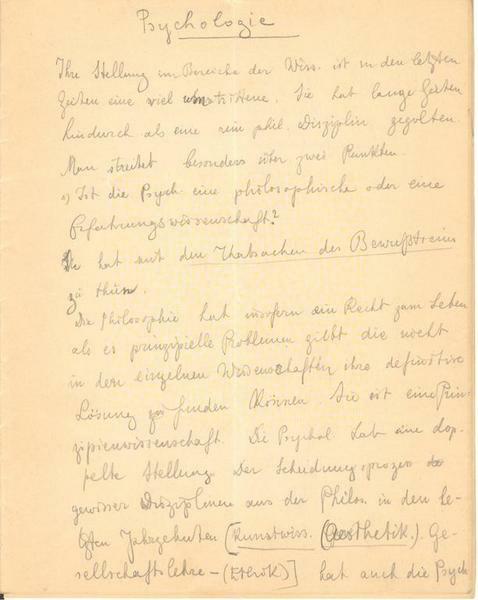 Psychologie
Ihre Stellung im Bereiche der Wiss. ist in den letzten
Zeiten eine viel umstrittene. Sie hat lange Zeiten
hindurch als eine rein phil. Disziplin gegolten.
Man streitet besonders über zwei Punkten.
1) Ist die Psych. eine philosophische oder eine
Erfahrungswissenschaft?
Sie hat mit den Thatsachen des Bewußtseins
zu thun.
Die Philosophie hat insofern ein Recht zum Leben
als es prinzipielle Probleme gibt die nicht
in den einzelnen Wissenschaften ihre definitive
Lösung zu finden können. Sie ist eine Prin-
zipienwissenschaft. Die Psychol. hat eine dop-
pelte Stellung. Der Scheidungsprozess
gewisser Disziplinen aus der Philos. in den le-
tzten Jahrzehnten (Kunstwiss. (Aesthetik.) Ge-
sellschaftslehre - (Ethik)] hat auch die Psych